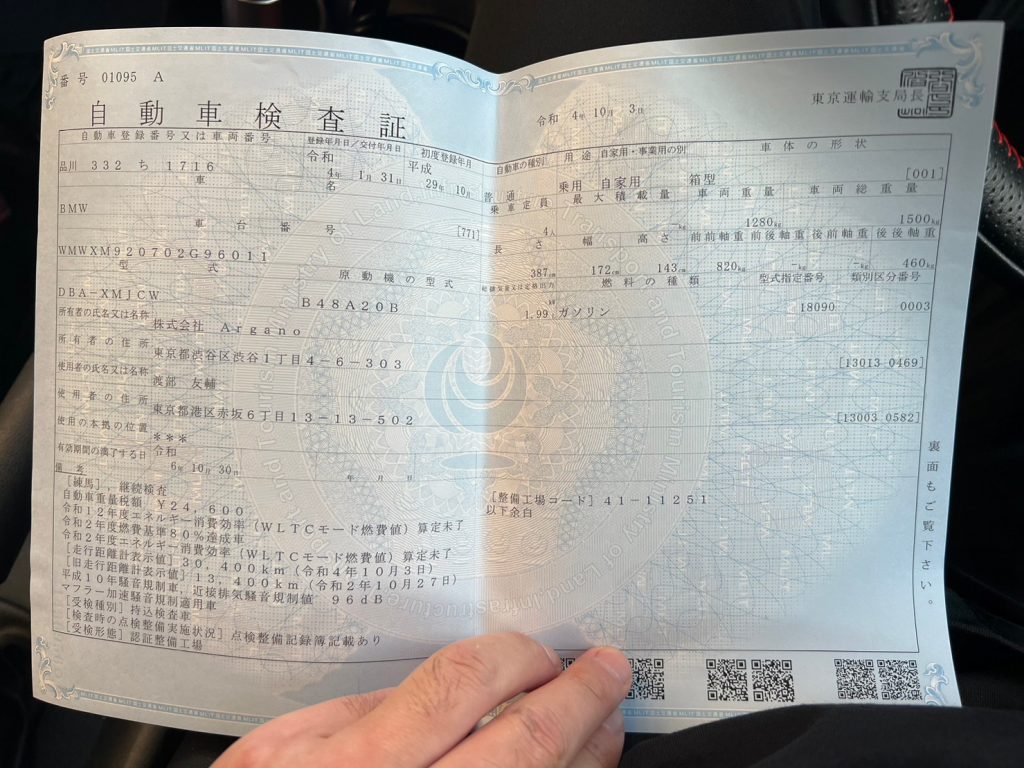 番号 01095 A
自動車検査証
令和 4年 10月 3日 東京運輸支局長
自動車登録番号又は車両番号 登録年月日／交付年月日 初度登録年月 自動車の種別 用途 自家用・事業用の別 車体の形状
品川 332 ち 1716 令和 4年 1月 31日 平成 29年 10月 普通 乗用 自家用 箱型 [001]
車名 乗車定員 最大積載量 車両重量 車両総重量
BMW [771] 4人 －kg 1280kg 1500kg
車台番号 長さ 幅 高さ 前前軸重 前後軸重 後前軸重 後後軸重
WMWXM920702G96011 387cm 172cm 143cm 820kg －kg －kg 460kg
型式 原動機の型式 総排気量又は定格出力 燃料の種類 型式指定番号 類別区分番号
DBA－XMJCW B48A20B kW 1.99L ガソリン 18090 0003
所有者の氏名又は名称 株式会社 Argano
所有者の住所 東京都渋谷区渋谷1丁目4－6－303 [13013 0469]
使用者の氏名又は名称 渡部 友輔
使用者の住所 東京都港区赤坂6丁目13－13－502 [13003 0582]
使用の本拠の位置 ＊＊＊
有効期間の満了する日 令和 6年 10月 30日 年 月 日
備考
[練馬]，継続検査
自動車重量税額 ￥24，600
令和12年度エネルギー消費効率（WLTCモード燃費値）算定未了
令和2年度燃費基準80％達成車
令和2年度エネルギー消費効率（WLTCモード燃費値）算定未了
[走行距離計表示値] 30，400km（令和4年10月3日）
[旧走行距離計表示値] 13，400km（令和2年10月27日）
平成10年騒音規制車，近接排気騒音規制値 96dB
マフラー加速騒音規制適用車
[受検種別] 持込検査車
[検査時の点検整備実施状況] 点検整備記録簿記載あり
[受検形態] 認証整備工場
[整備工場コード] 41－11251
以下余白
裏面もご覧下さい。